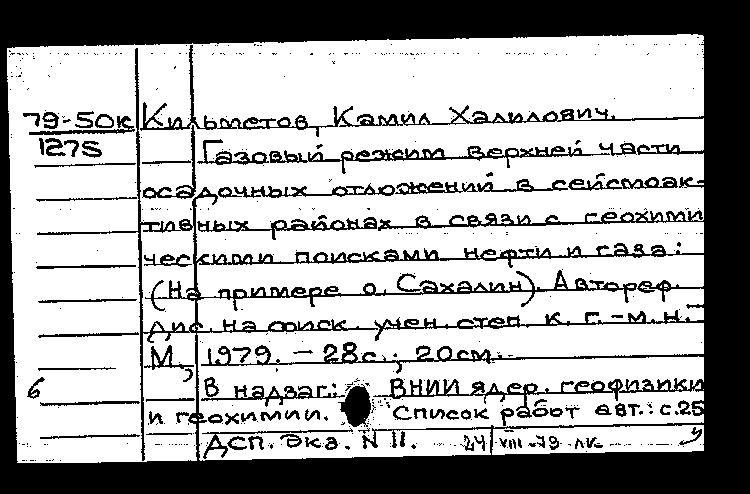 79-50к Кильметов, Камил Халилович.
1275 Газовый режим верхней части
осадочных отложений в сейсмоак-
тивных районах в связи с геохими
ческими поисками нефти и газа:
(На примере о. Сахалин). Автореф.
дис. на соиск. учен. степ. к. г.-м. н. –
М., 1979. – 28с.; 20см.
6 В надзаг.: ВНИИ ядер. геофизики
и геохимии. Список работ авт.: с.25
ДСП. Экз. N 11. 24/VIII-79 лк